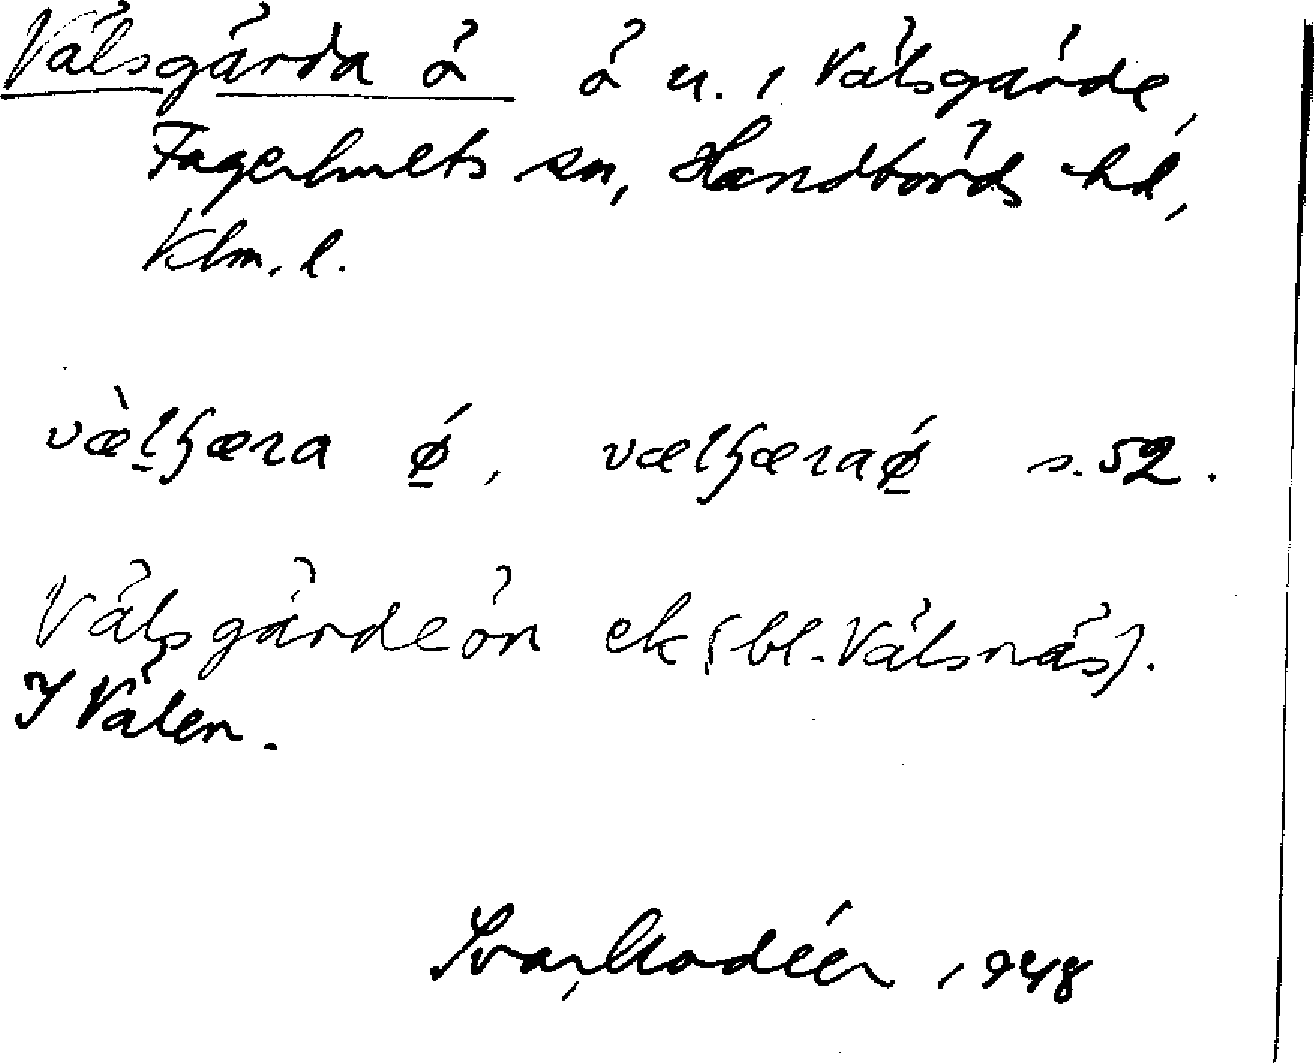 Välsgärda ö ö u. i Välsgärde,
Fagerhults sn, Handbörds hd,
Klm. l.
væ̀l̠ʃæra ǿ̠, vælʃæraǿ̠ s. 52.
Välsgärdeön ek (bl. Välsnäs).
I Välen.
Ivar Modéer 1948